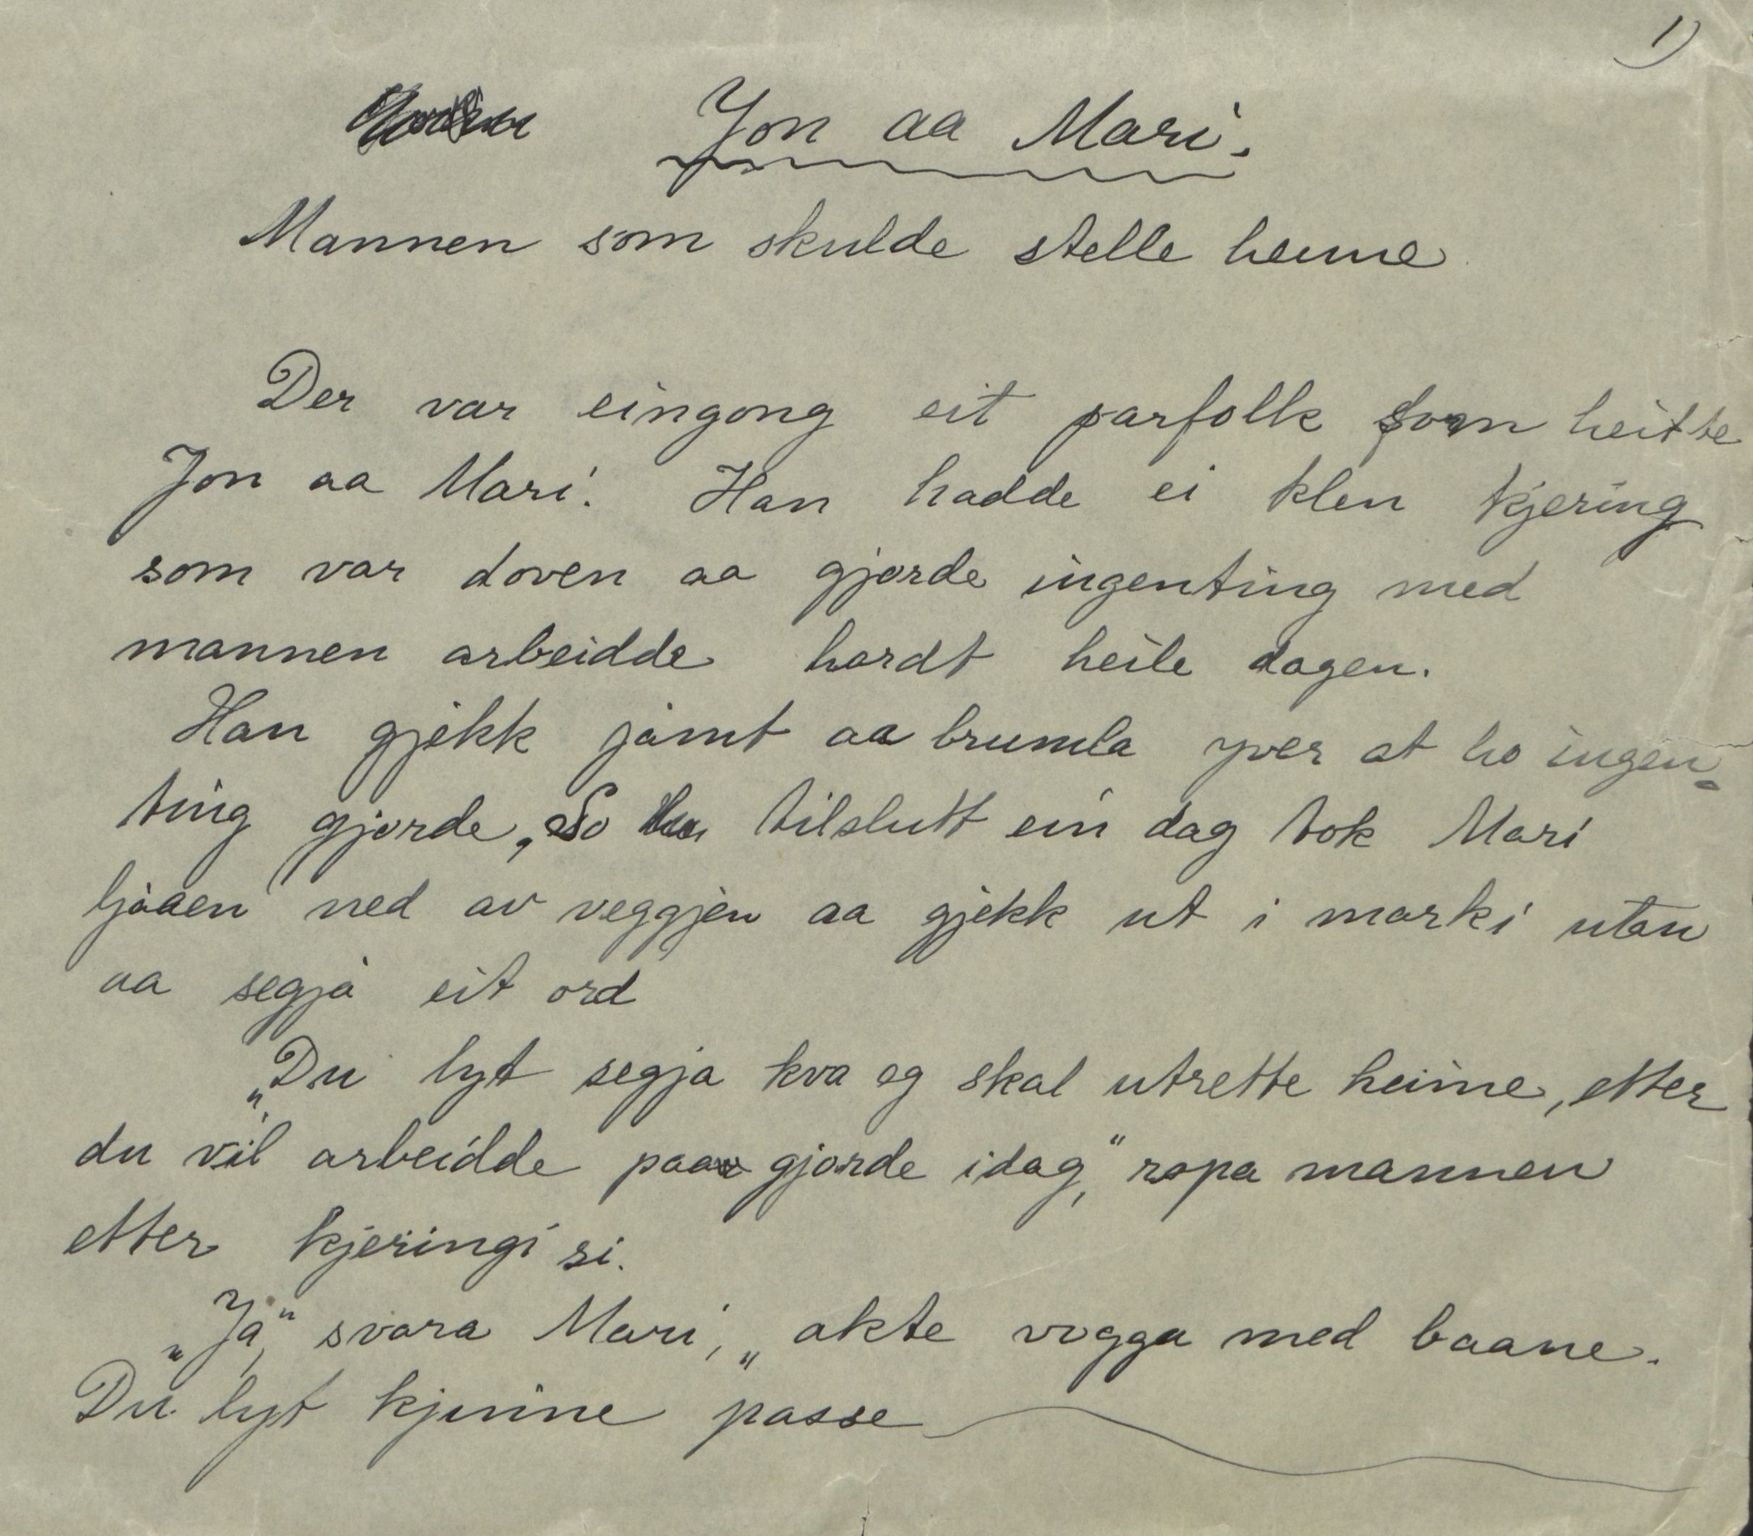 1)
Jon aa Mari.
Mannen som skulde stelle heime
Der var eingong eit parfolk som heitte
Jon aa Mari. Han hadde ei klen kjering
som var doven aa gjorde ingenting med
mannen arbeidde hardt heile dagen.
Han gjekk jamt aa brumla yver at ho ingen-
ting gjorde, So tilslutt ein dag tok Mari
ljaaen ned av veggjen aa gjekk ut i marki utan
aa segja eit ord
„Du lyt segja kva eg skal utrette heime, etter
du vil arbeidde paa gjorde idag,“ ropa mannen
etter kjeringi si.
„Ja,“ svara Mari, „akte vogga med baane.
Du lyt kjinne passe